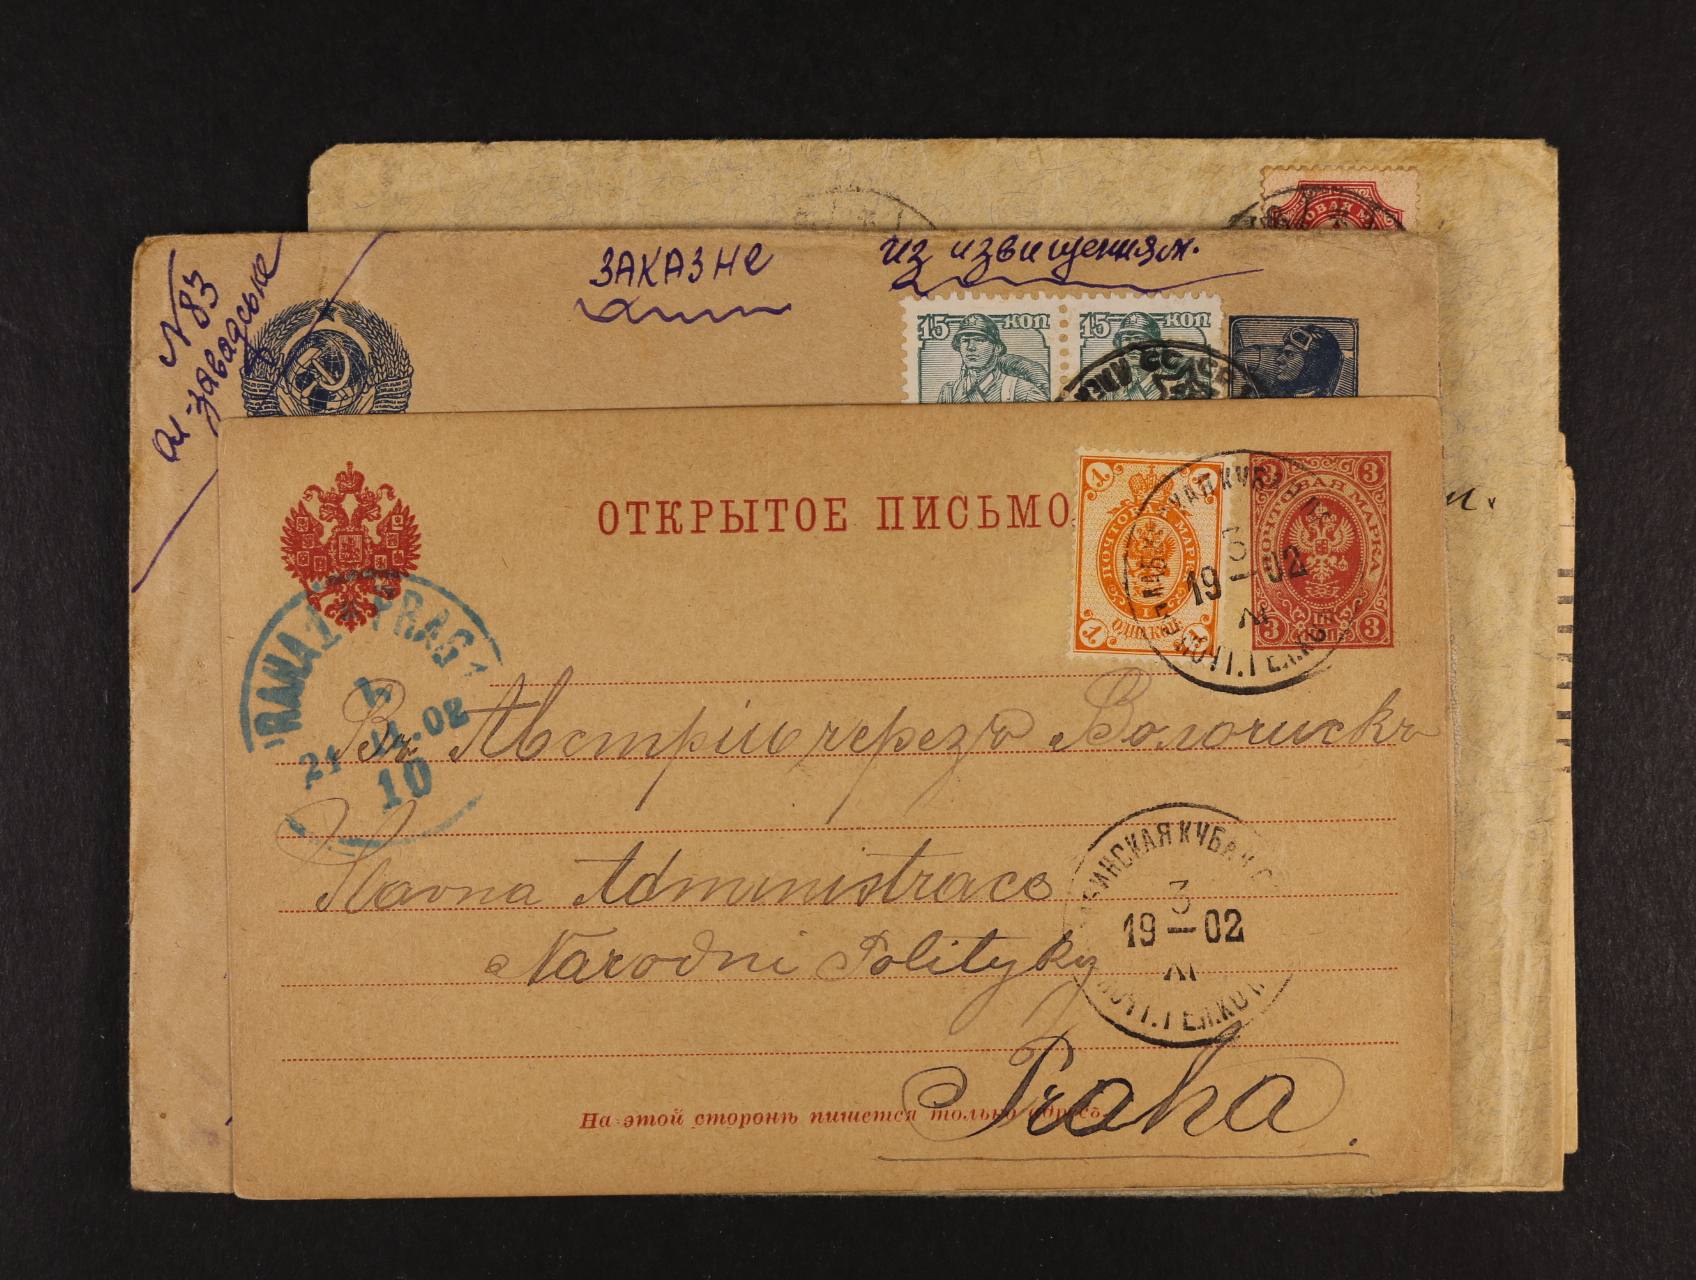 ОВАЯ М
ЗАКАЗНе
из извищениям.
N 83
15 КОП
15 КОП
ОТКРЫТОЕ ПИСЬМО
1 1
ПОЧТОВАЯ МАРКА
ОДНА КОП.
1 1
3 3
ПОЧТОВАЯ МАРКА
ТРИ КОП.
3 3
3
19—02
XI
ПОЧТ. ТЕЛ. КО
PRAHA 1 PRAG
21 . 02
10
Въ Австрію черезъ Волочискъ
Slavna Administrace
Narodni Polityky
Praha.
ИНСКАЯ КУБАН
3
19—02
XI
ПОЧТ. ТЕЛ. КО
На этой сторонѣ пишется только адресъ.